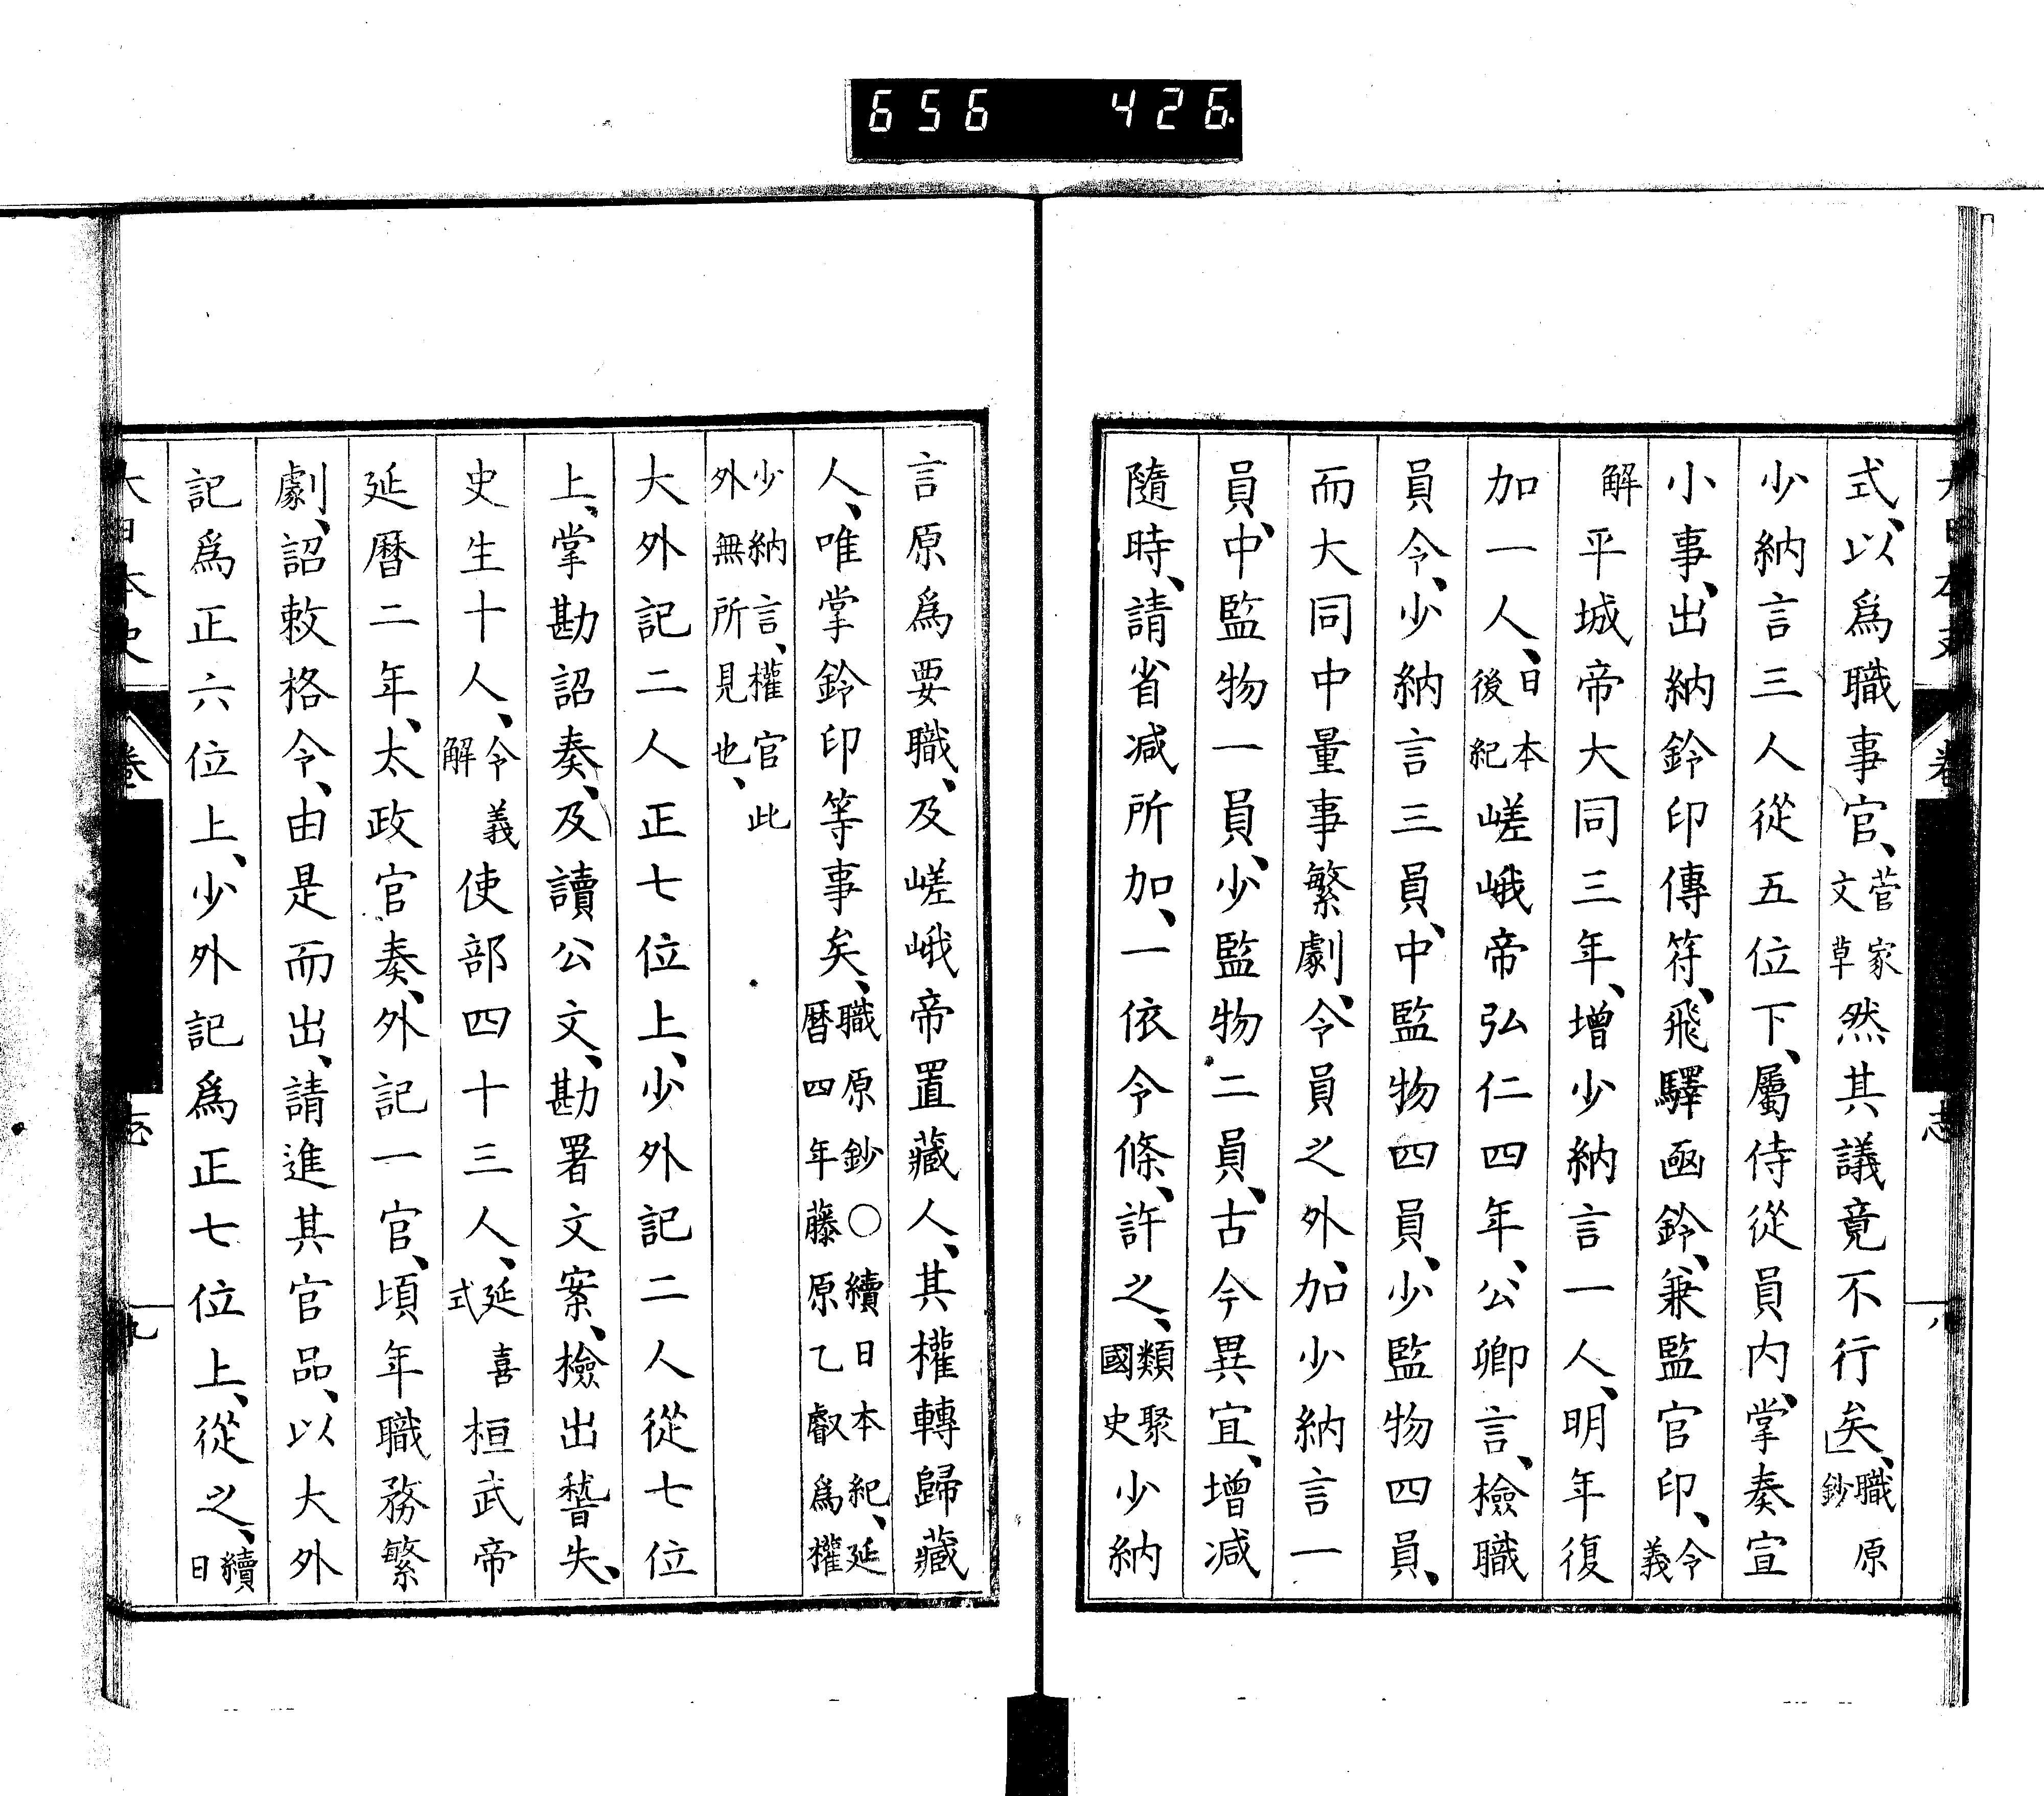 656 426
式、以爲職事官、菅家文草然其議竟不行矣、職原鈔
少納言三人從五位下、屬侍從員内、掌奏宣
小事、出納鈴印傳符、飛驛函鈴、兼監官印、令義
解平城帝大同三年、增少納言一人、明年復
加一人、日本後紀嵯峨帝弘仁四年、公卿言、檢職
員令、少納言三員、中監物四員、少監物四員、
而大同中量事繁劇、令員之外、加少納言一
員、中監物一員、少監物二員、古今異宜、增减
隨時、請省减所加、一依令條、許之、類聚國史少納
言原爲要職、及嵯峨帝置藏人、其權轉歸藏
人、唯掌鈴印等事矣、職原鈔〇續日本紀、延曆四年藤原乙叡爲權
少納言、權官此外無所見也、
大外記二人正七位上、少外記二人從七位
上、掌勘詔奏、及讀公文、勘署文案、檢出稽失、
史生十人、令義解使部四十三人、延喜式桓武帝
延曆二年、太政官奏、外記一官、頃年職務繁
劇、詔敕格令、由是而出、請進其官品、以大外
記爲正六位上、少外記爲正七位上、從之、續日
大日本史 卷 志 九